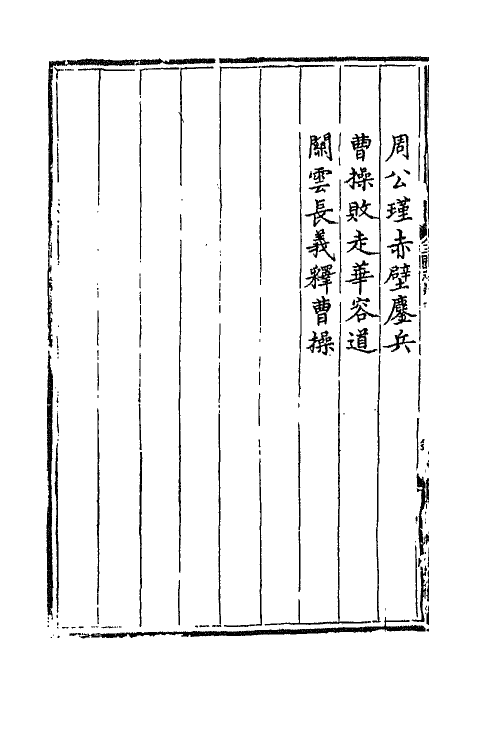 周公瑾赤壁鏖兵
曹操敗走華容道
關雲長義釋曹操